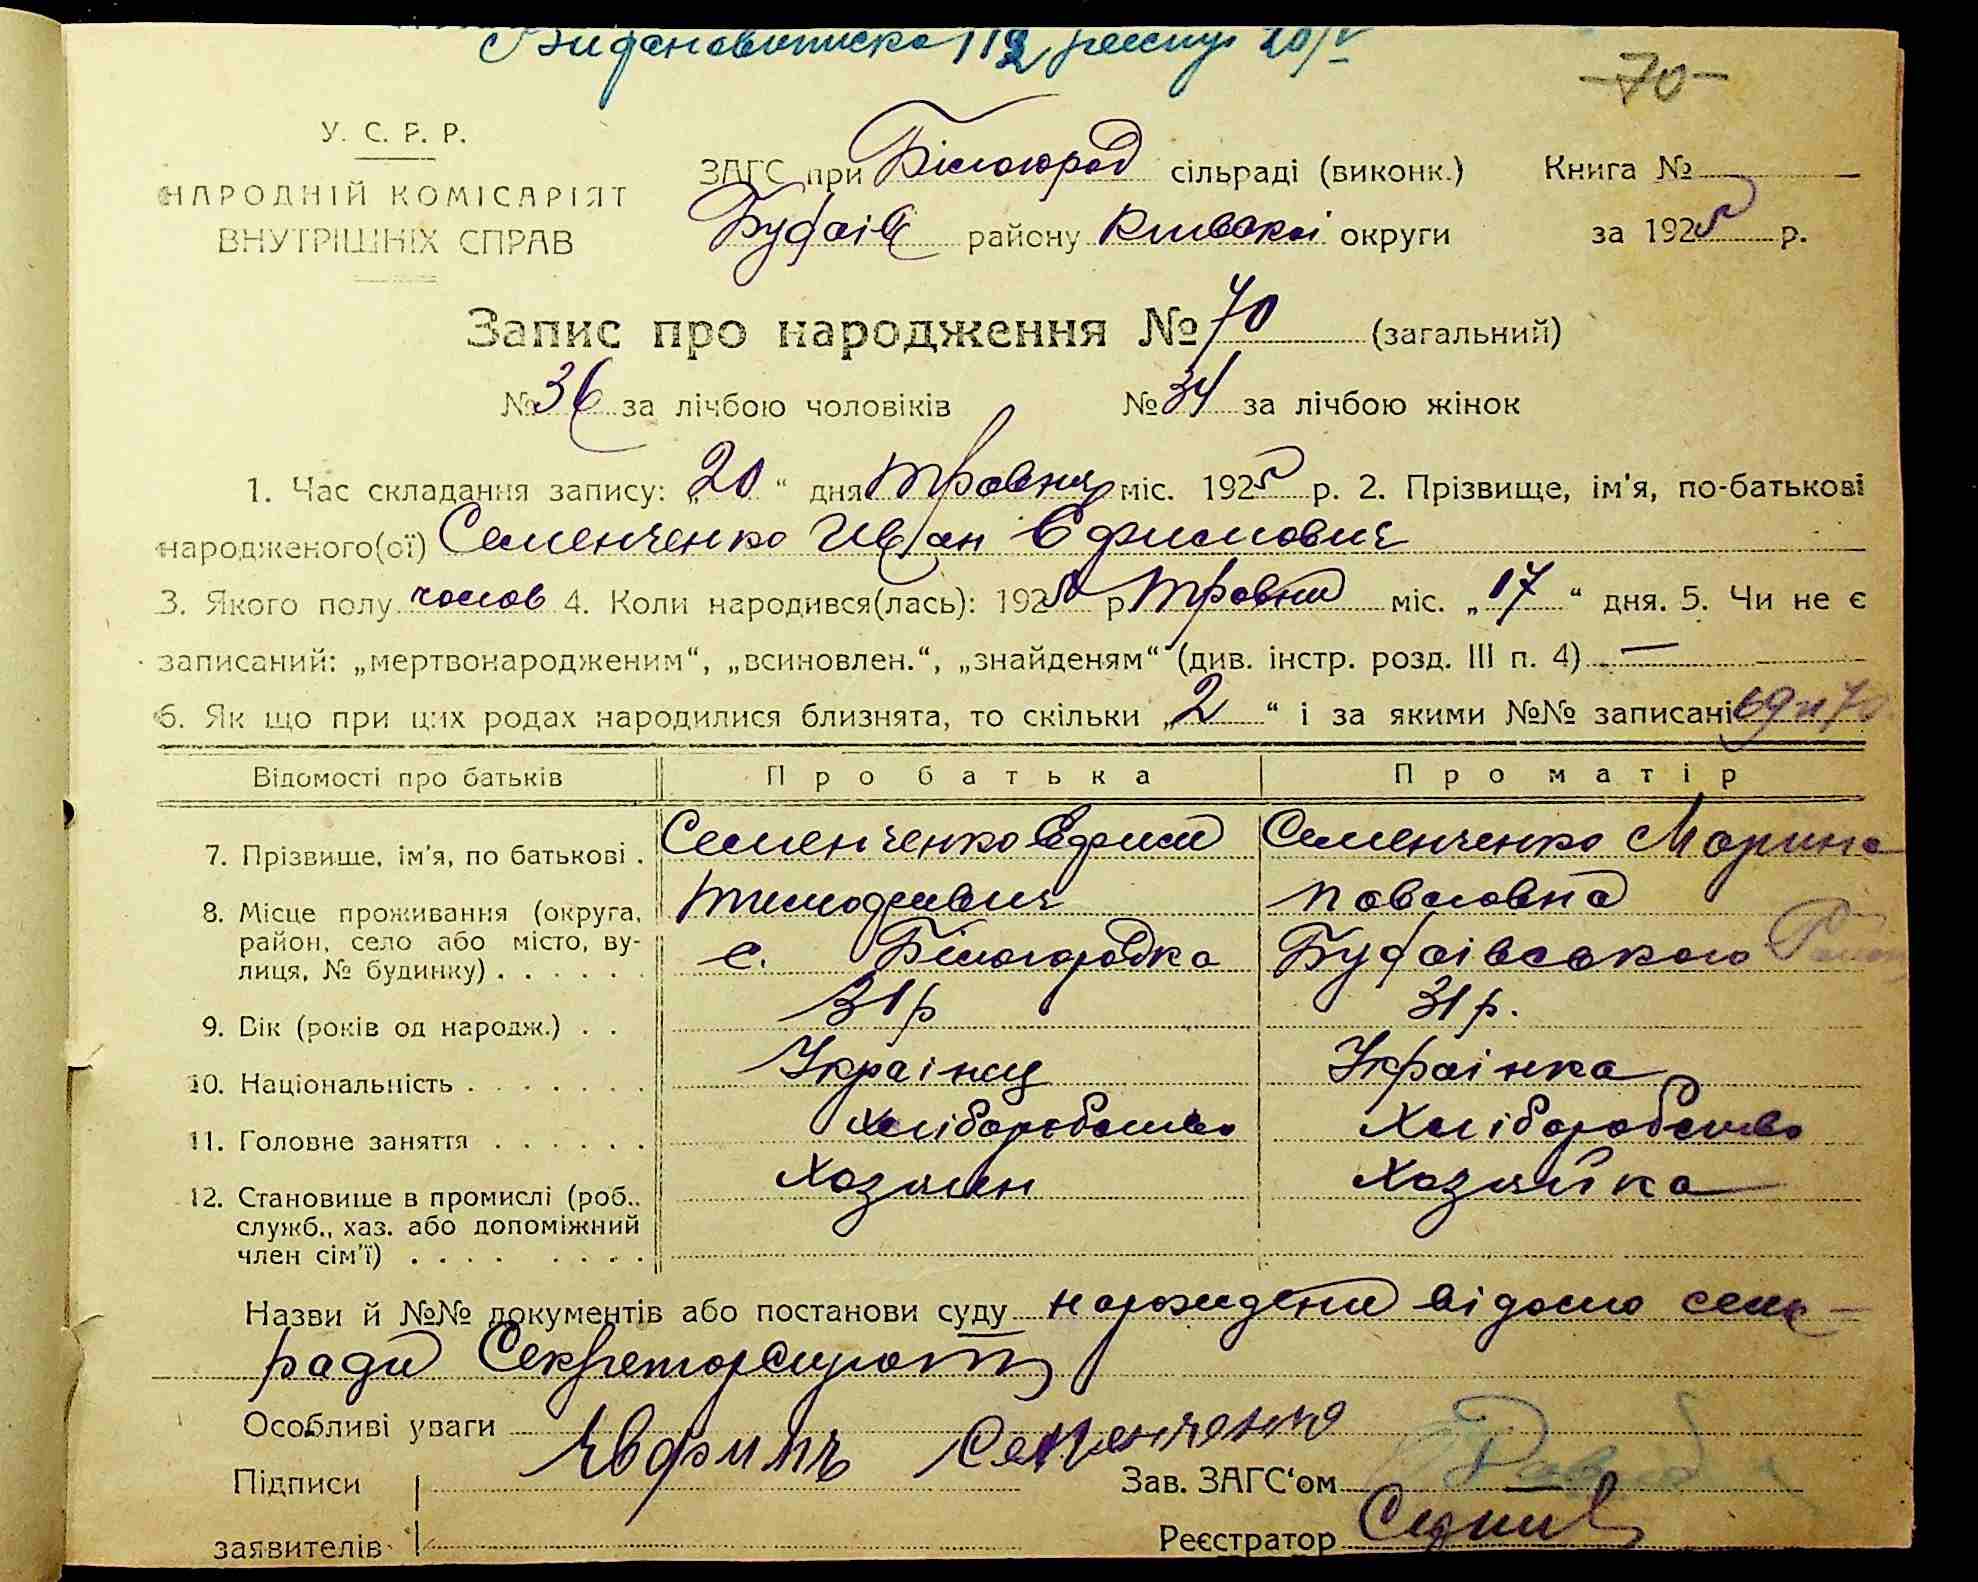 Видана виписка 112 20/V
-70-
У. С. Р. Р.
НАРОДНІЙ КОМІСАРІЯТ
ВНУТРІШНІХ СПРАВ
ЗАГС при Білогород сільраді (виконк.) Книга №
Будаів району Київскоі округи за 1925 р.
Запис про народження № 70 (загальний)
№ 36 за лічбою чоловіків № 34 за лічбою жінок
1. Час складання запису: „20“ дня травня міс. 1925 р. 2. Прізвище, ім'я, по-батькові
народженого(ої) Семенченко Иван Ефимович
3. Якого полу чолов 4. Коли народився(лась): 1925 р травня міс. „17“ дня. 5. Чи не є
записаний: „мертвонародженим“, „всиновлен.“, „знайденям“ (див. інстр. розд. III п. 4) —
6. Як що при цих родах народилися близнята, то скільки „2“ і за якими №№ записані 69 и 70
Відомості про батьків Про батька Про матір
7. Прізвише, ім'я, по батькові . Семенченко Ефим Семенченко Марина
Тимофеевич Павловна
8. Місце проживання (округа,
район, село або місто, ву-
лиця, № будинку) . . . . . . с. Білогородка Будаівського Району
9. Вік (років од народж.) . . 31 р 31 р.
10. Національність . . . . . . . Украінец Украінка
11. Головне заняття . . . . . . Хліборобство Хліборобство
12. Становище в промислі (роб.. Хозяин Хозяйка
служб., хаз. або допоміжний
член сім'ї) . . . . . . . .
Назви й №№ документів або постанови суду нарождения відомо сель-
ради
Особливі уваги
Підписи Евфимъ Семенченко Зав. ЗАГС'ом
заявителів Реєстратор